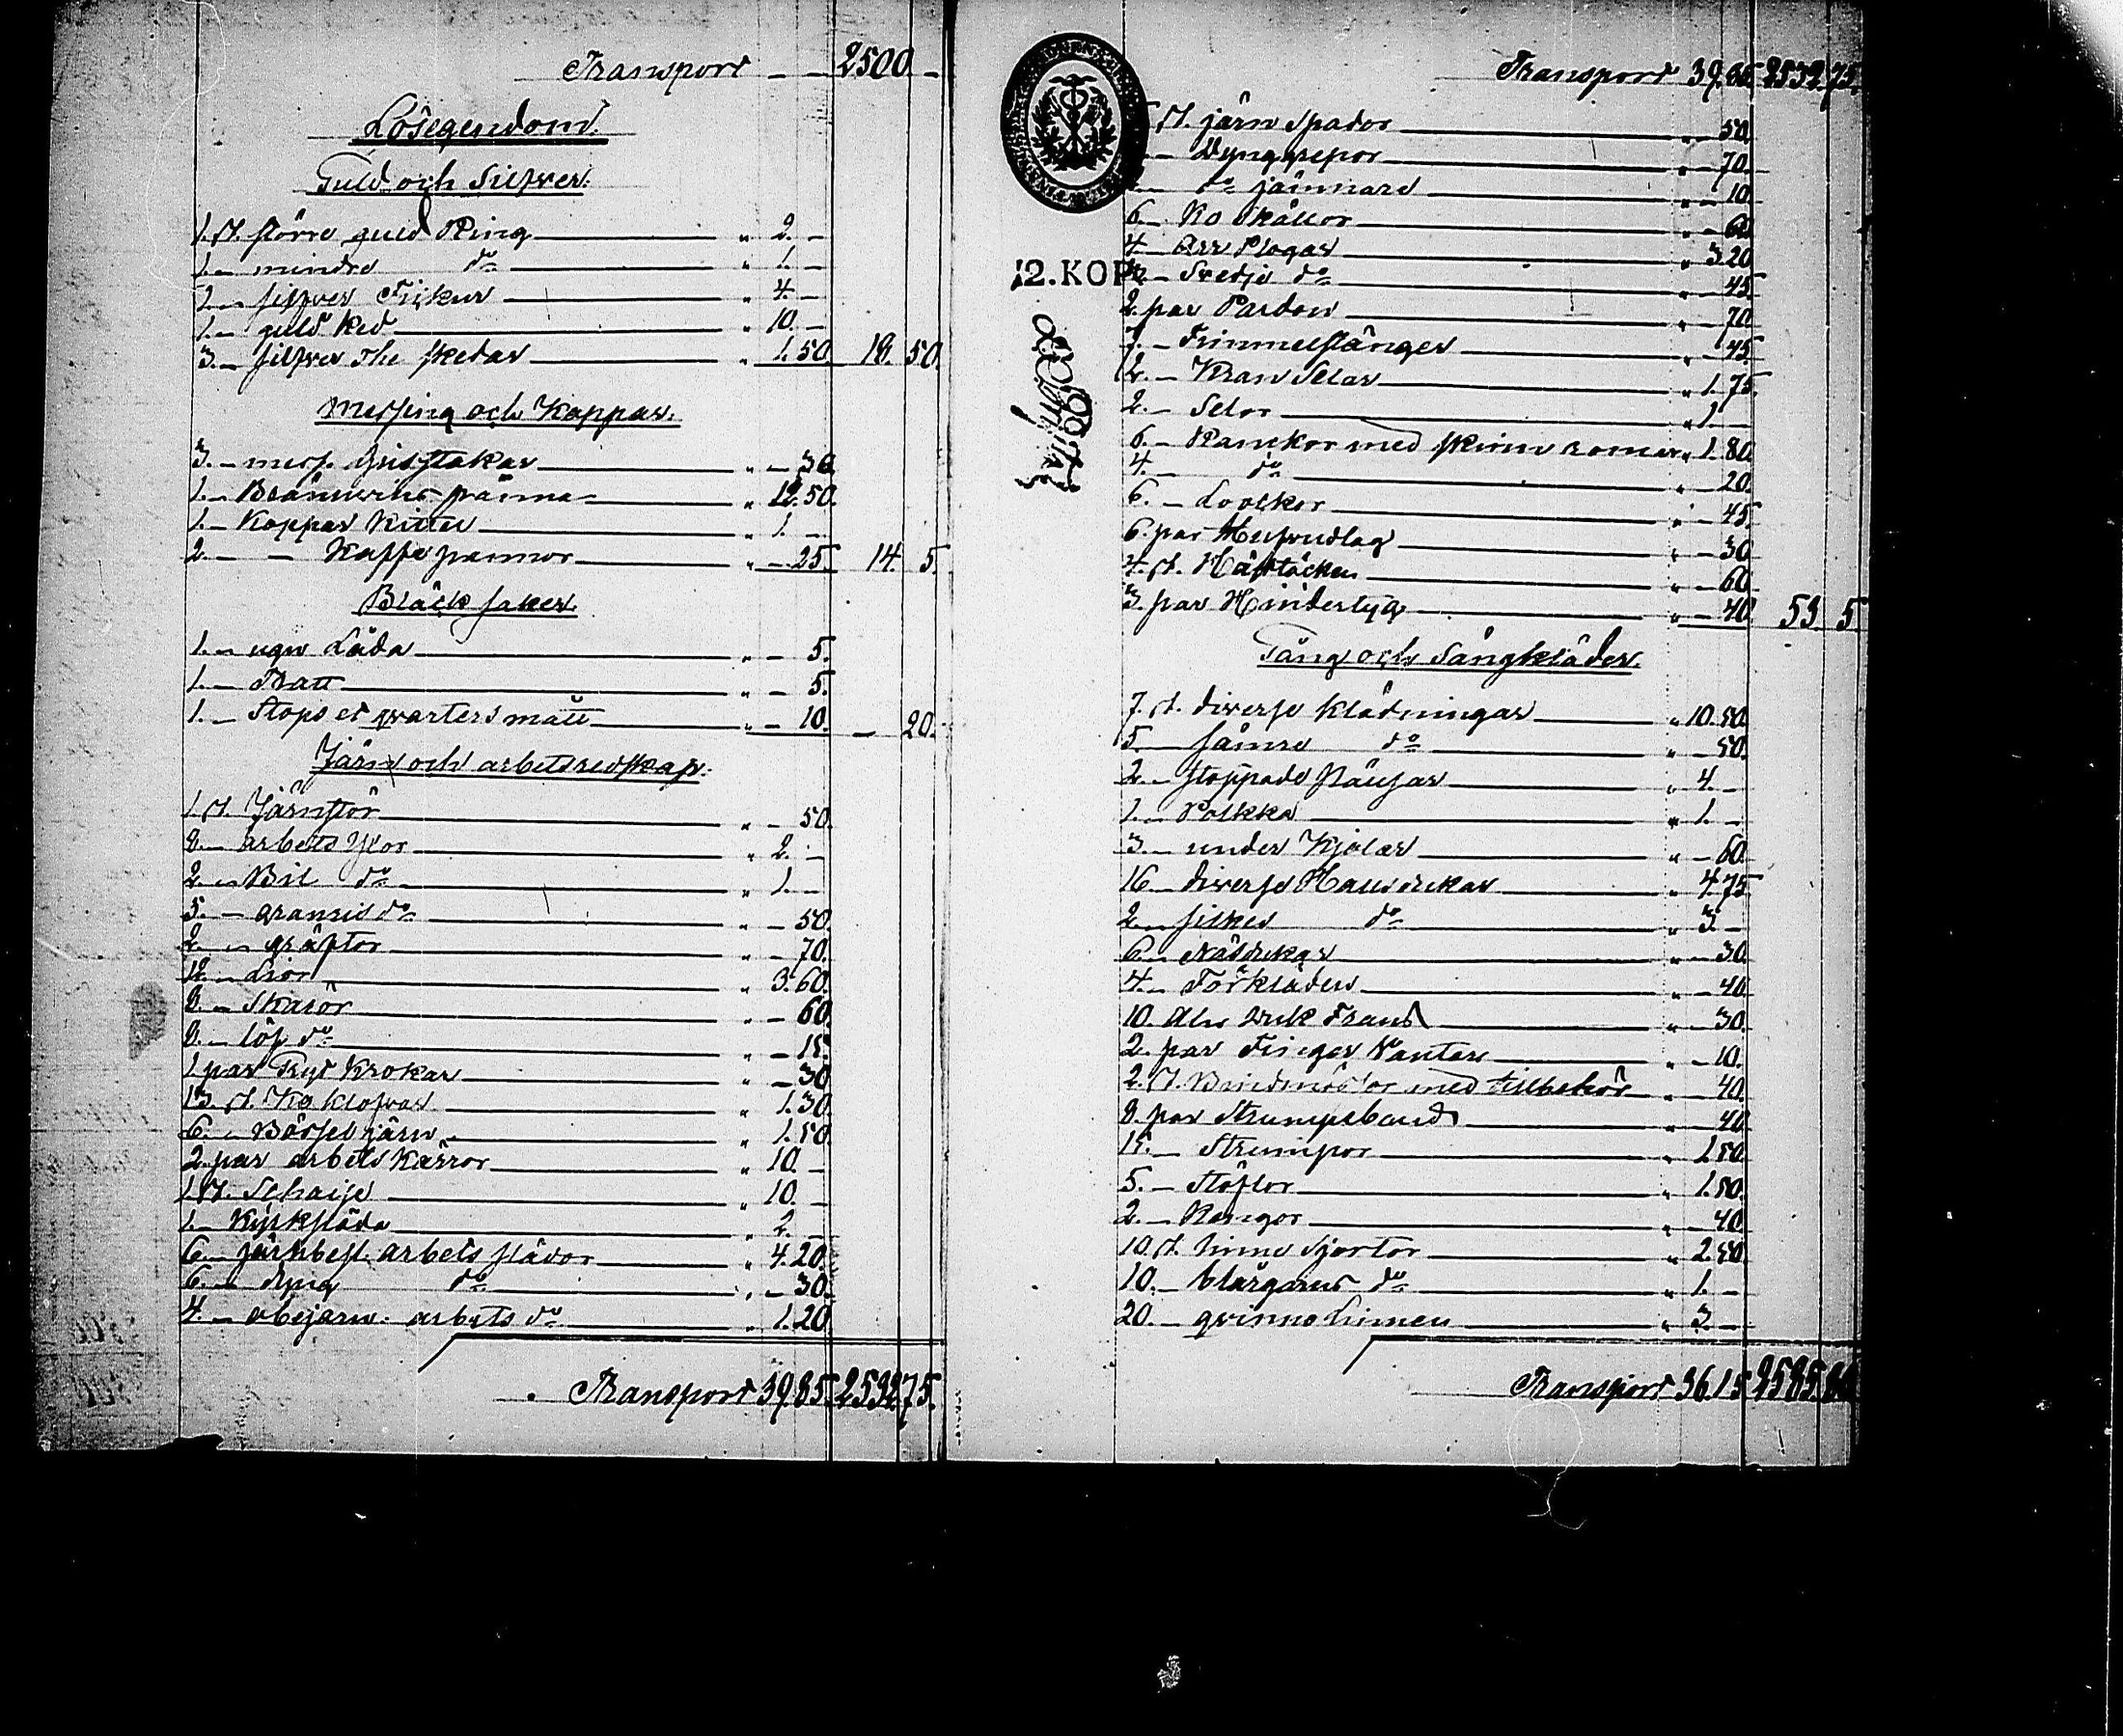 Transport — — 2500 —
Lösegendom.
Guld och Silfver.
1. st. större guld Ring " 2. —
1. — mindre do " 1. —
2. — silfver " 4. —
1. — guld Ked " 10. —
3. — silfver The skedar " 1. 50. 18. 50.
Messing och Koppar.
3. — mess. ljusstakar " — 30
1. — Brännvins panna " 12. 50.
1. — Koppar Kittel " 1. —
2. — — Kaffe pannor " — 25. 14. 5.
Bläck saker.
1. — ugn Låda " — 5.
1. — Tratt " — 5.
1. — Stops et qvarters mått " — 10. — 20.
Järn och arbetsredskap.
1. st. Järnstör " — 50.
2. — arbets Yxor " 2. —
2. — Bil do " 1. —
5. — do " — 50.
2. — gräftor " — 70.
12. — Lior " 3. 60.
8. — Skäror " — 60.
— löf do " — 15.
1. par Krokar " — 30
13. st. Ko klofvar " 1. 30.
6. — järn " 1. 50.
2. par arbets Kärror " 10. —
1. st. Schaise " 10. —
1. — Kyrksläda " 2. —
6. — järnbesl. arbets slädor " 4. 20.
6. — dyng do " — 30.
4. — obejärn. arbets do " 1. 20
Transport 39. 85. 2532 75.
Transport 39. 85. 2532 75.
st. järn Spador " — 50
— Dynggrepor " — 70.
— do jämnare " — 10.
6. — Ko skällor " — 60.
4. — Plogar " 3. 20
— Svedje do " — 45.
2. par Pardon " — 70
— Trimmelstänger " — 45.
2. — Kran Selar " 1. 75.
2. — Selor " 1. —
6. — Ranckor med skinn romar " 1. 80.
4. — do " — 20.
6. — Lovckor " — 45.
6. par Hufvudlag " — 30
4. st. Hästtäcken " — 60
3. par Hindertyg " — 40. 53. 5
Gång och Sängkläder.
7. st. diverse klädningar " 10. 50.
5. — sämre do " — 50.
2. — stoppade " 4. —
1. — Polkka " 1. —
3. — under Kjolar " — 60.
16. — diverse Halsdukar " 4. 75
2. — silkes do " 3. —
6. — Näsdukar " — 30.
4. — Förkläden " — 40.
10. Aln Duk Frans " — 30.
2. par Finger Vantar " — 10.
2. st. Bindmössor med tillbehör " — 40.
8. par Strumpeband " — 40.
15. — Strumpor " 1. 50.
5. — Stöflor " 1. 50.
2. — Kängor " — 40
10. st. linne Sjortor " 2. 50.
10. — blårgarns do " 1. —
20. — qvinno linnen " 3. —
Transport 36. 15 2585. 80
12.KOP.